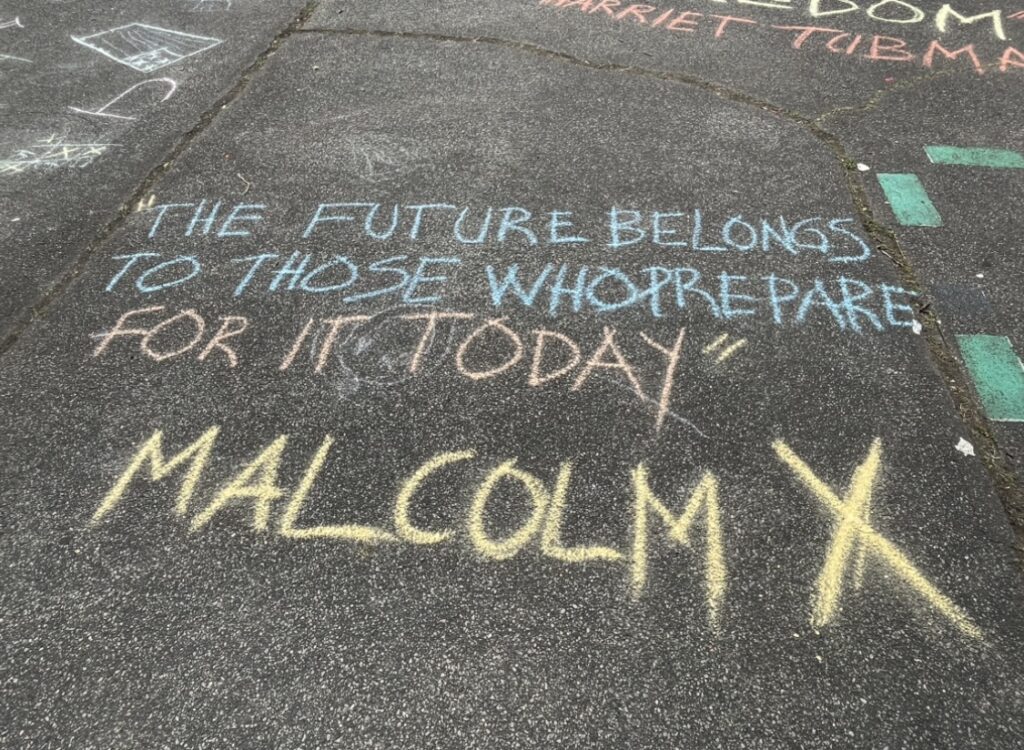 EDOM"
HARRIET TUBMA
"THE FUTURE BELONGS
TO THOSE WHO PREPARE
FOR IT TODAY"
MALCOLM X